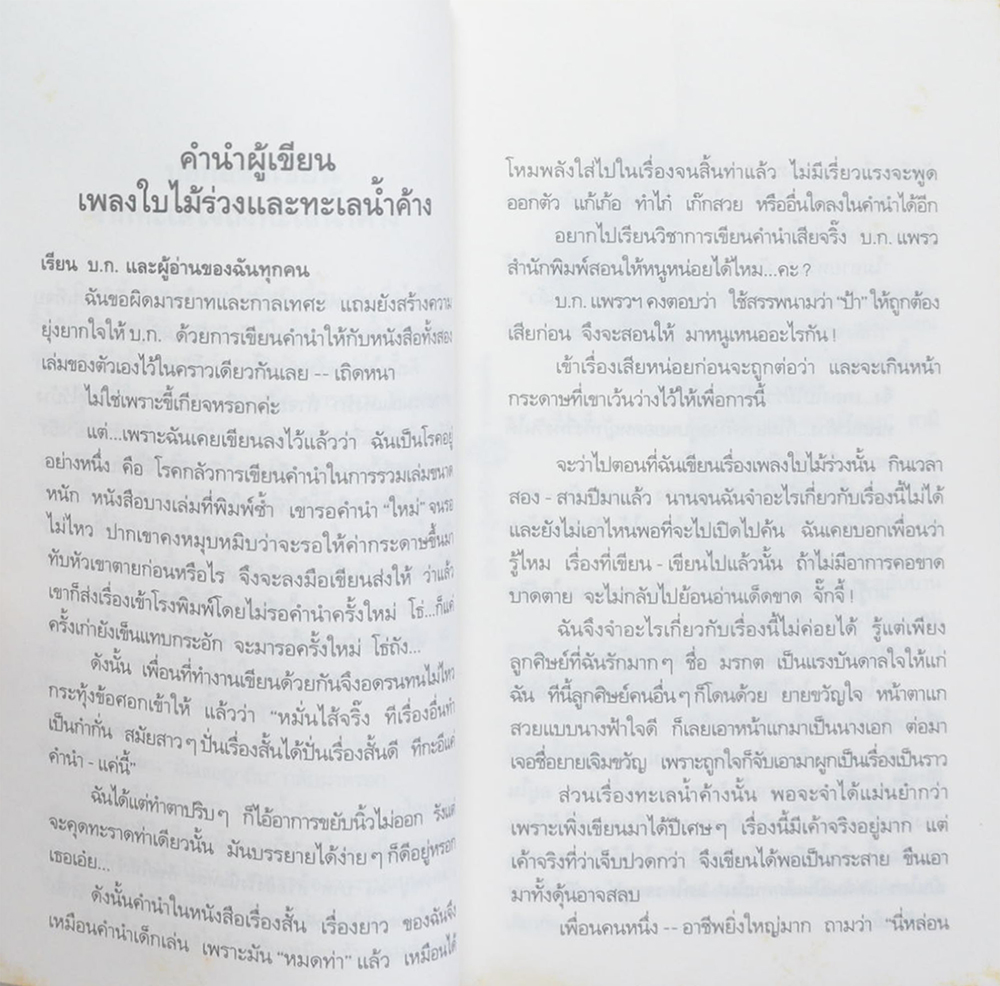 คำนำผู้เขียน
เพลงใบไม้ร่วงและทะเลน้ำค้าง
เรียน บ.ก. และผู้อ่านของฉันทุกคน
ฉันขอผิดมารยาทและกาลเทศะ แถมยังสร้างความ
ยุ่งยากใจให้ บ.ก. ด้วยการเขียนคำนำให้กับหนังสือทั้งสอง
เล่มของตัวเองไว้ในคราวเดียวกันเลย -- เถิดหนา
ไม่ใช่เพราะขี้เกียจหรอกค่ะ
แต่...เพราะฉันเคยเขียนลงไว้แล้วว่า ฉันเป็นโรคอยู่
อย่างหนึ่ง คือ โรคกลัวการเขียนคำนำในการรวมเล่มขนาด
หนัก หนังสือบางเล่มที่พิมพ์ซ้ำ เขารอคำนำ “ใหม่” จนรอ
ไม่ไหว ปากเขาคงหมุบหมิบว่าจะรอให้ค่ากระดาษขึ้นมา
ทับหัวเขาตายก่อนหรือไร จึงจะลงมือเขียนส่งให้ ว่าแล้ว
เขาก็ส่งเรื่องเข้าโรงพิมพ์โดยไม่รอคำนำครั้งใหม่ โธ่...ก็แค่
ครั้งเก่ายังเข็นแทบกระอัก จะมารอครั้งใหม่ โธ่ถัง...
ดังนั้น เพื่อนที่ทำงานเขียนด้วยกันจึงอดรนทนไม่ไหว
กระทุ้งข้อศอกเข้าให้ แล้วว่า “หมั่นไส้จริ๊ง ทีเรื่องอื่นทำ
เป็นกำกั่น สมัยสาวๆ ปั่นเรื่องสั้นได้ปั่นเรื่องสั้นดี ทีกะอีแค่
คำนำ - แค่นี้”
ฉันได้แต่ทำตาปริบๆ ก็ไอ้อาการขยับนิ้วไม่ออก รังแต่
จะคุดทะราดท่าเดียวนั้น มันบรรยายได้ง่ายๆ ก็ดีอยู่หรอก
เธอเอ๋ย...
ดังนั้นคำนำในหนังสือเรื่องสั้น เรื่องยาว ของฉันจึง
เหมือนคำนำเด็กเล่น เพราะมัน “หมดท่า” แล้ว เหมือนได้
โหมพลังใส่ไปในเรื่องจนสิ้นท่าแล้ว ไม่มีเรี่ยวแรงจะพูด
ออกตัว แก้เก้อ ทำไก๋ เก๊กสวย หรืออื่นใดลงในคำนำได้อีก
อยากไปเรียนวิชาการเขียนคำนำเสียจริ๊ง บ.ก. แพรว
สำนักพิมพ์สอนให้หนูหน่อยได้ไหม...คะ ?
บ.ก. แพรวฯ คงตอบว่า ใช้สรรพนามว่า “ป้า” ให้ถูกต้อง
เสียก่อน จึงจะสอนให้ มาหนูเหนออะไรกัน !
เข้าเรื่องเสียหน่อยก่อนจะถูกต่อว่า และจะเกินหน้า
กระดาษที่เขาเว้นว่างไว้ให้เพื่อการนี้
จะว่าไปตอนที่ฉันเขียนเรื่องเพลงใบไม้ร่วงนั้น กินเวลา
สอง - สามปีมาแล้ว นานจนฉันจำอะไรเกี่ยวกับเรื่องนี้ไม่ได้
และยังไม่เอาไหนพอที่จะไปเปิดไปค้น ฉันเคยบอกเพื่อนว่า
รู้ไหม เรื่องที่เขียน - เขียนไปแล้วนั้น ถ้าไม่มีอาการคอขาด
บาดตาย จะไม่กลับไปย้อนอ่านเด็ดขาด จั๊กจี้ !
ฉันจึงจำอะไรเกี่ยวกับเรื่องนี้ไม่ค่อยได้ รู้แต่เพียง
ลูกศิษย์ที่ฉันรักมากๆ ชื่อ มรกต เป็นแรงบันดาลใจให้แก่
ฉัน ทีนี้ลูกศิษย์คนอื่นๆ ก็โดนด้วย ยายขวัญใจ หน้าตาแก
สวยแบบนางฟ้าใจดี ก็เลยเอาหน้าแกมาเป็นนางเอก ต่อมา
เจอชื่อยายเจิมขวัญ เพราะถูกใจก็จับเอามาผูกเป็นเรื่องเป็นราว
ส่วนเรื่องทะเลน้ำค้างนั้น พอจะจำได้แม่นยำกว่า
เพราะเพิ่งเขียนมาได้ปีเศษๆ เรื่องนี้มีเค้าจริงอยู่มาก แต่
เค้าจริงที่ว่าเจ็บปวดกว่า จึงเขียนได้พอเป็นกระสาย ขืนเอา
มาทั้งดุ้นอาจสลบ
เพื่อนคนหนึ่ง -- อาชีพยิ่งใหญ่มาก ถามว่า “นี่หล่อน